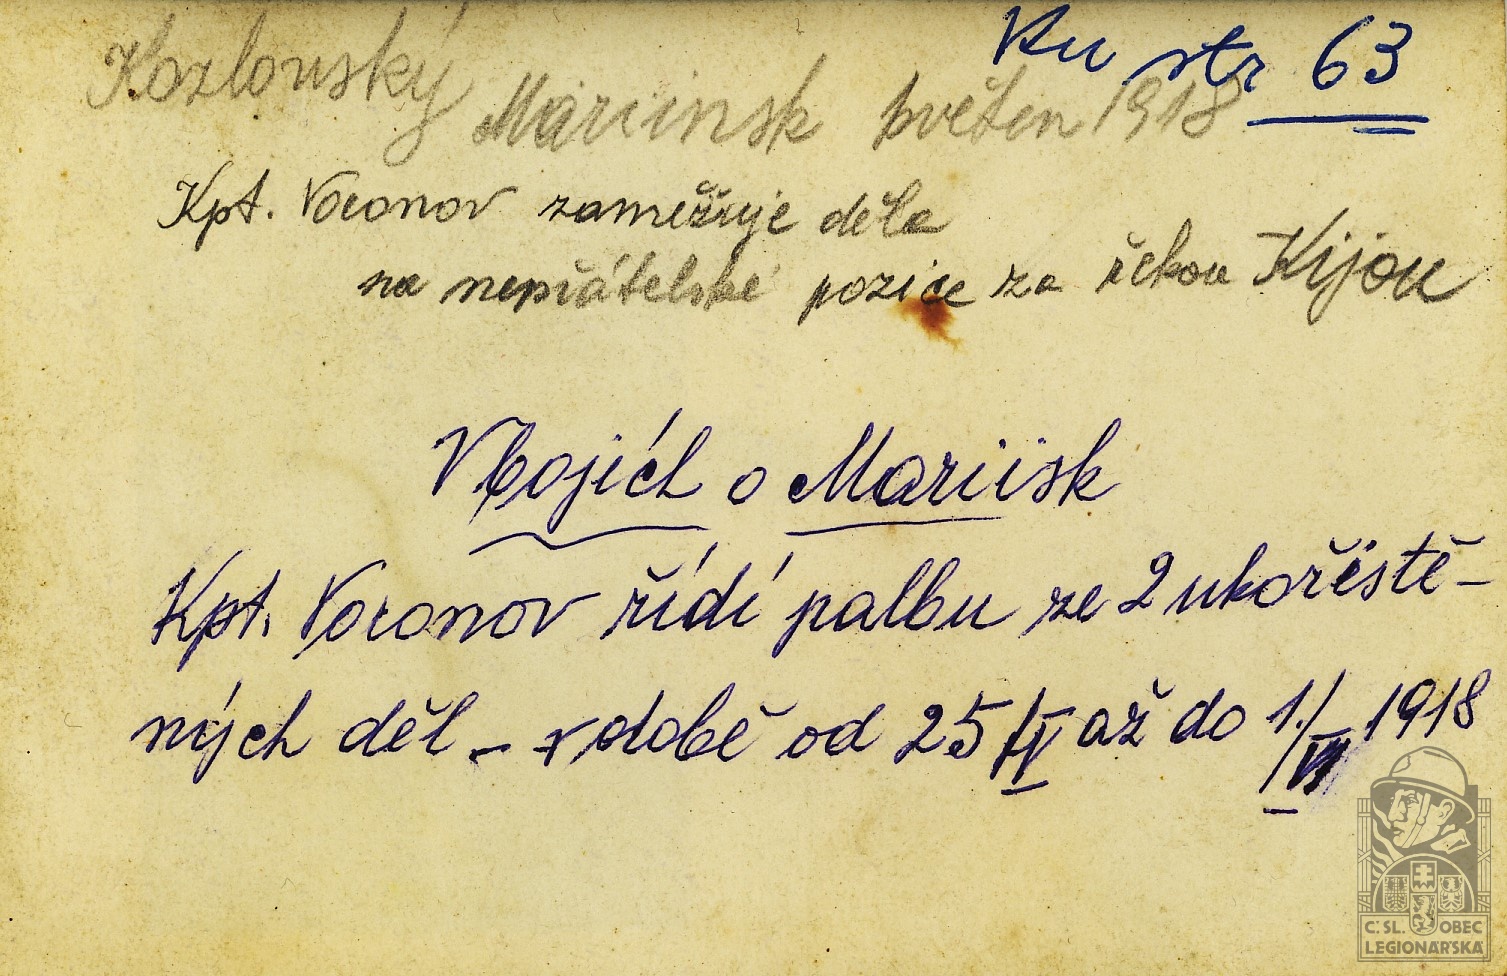 Ku str 63
Kozlovský
Mariinsk květen 1918
Kpt. Voronov zaměřuje děla
na nepřátelské pozice za řekou Kijou
V bojích o Mariisk
Kpt. Voronov řídí palbu ze 2 ukořistě-
ných děl – v době od 25/V až do 1./VI 1918
Č.SL. OBEC
LEGIONÁŘSKÁ